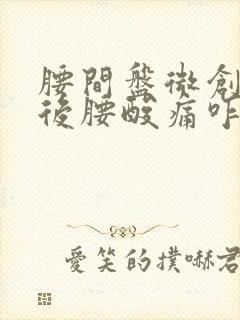 腰間盤微創
後腰酸痛咋
愛笑的撲嚇君